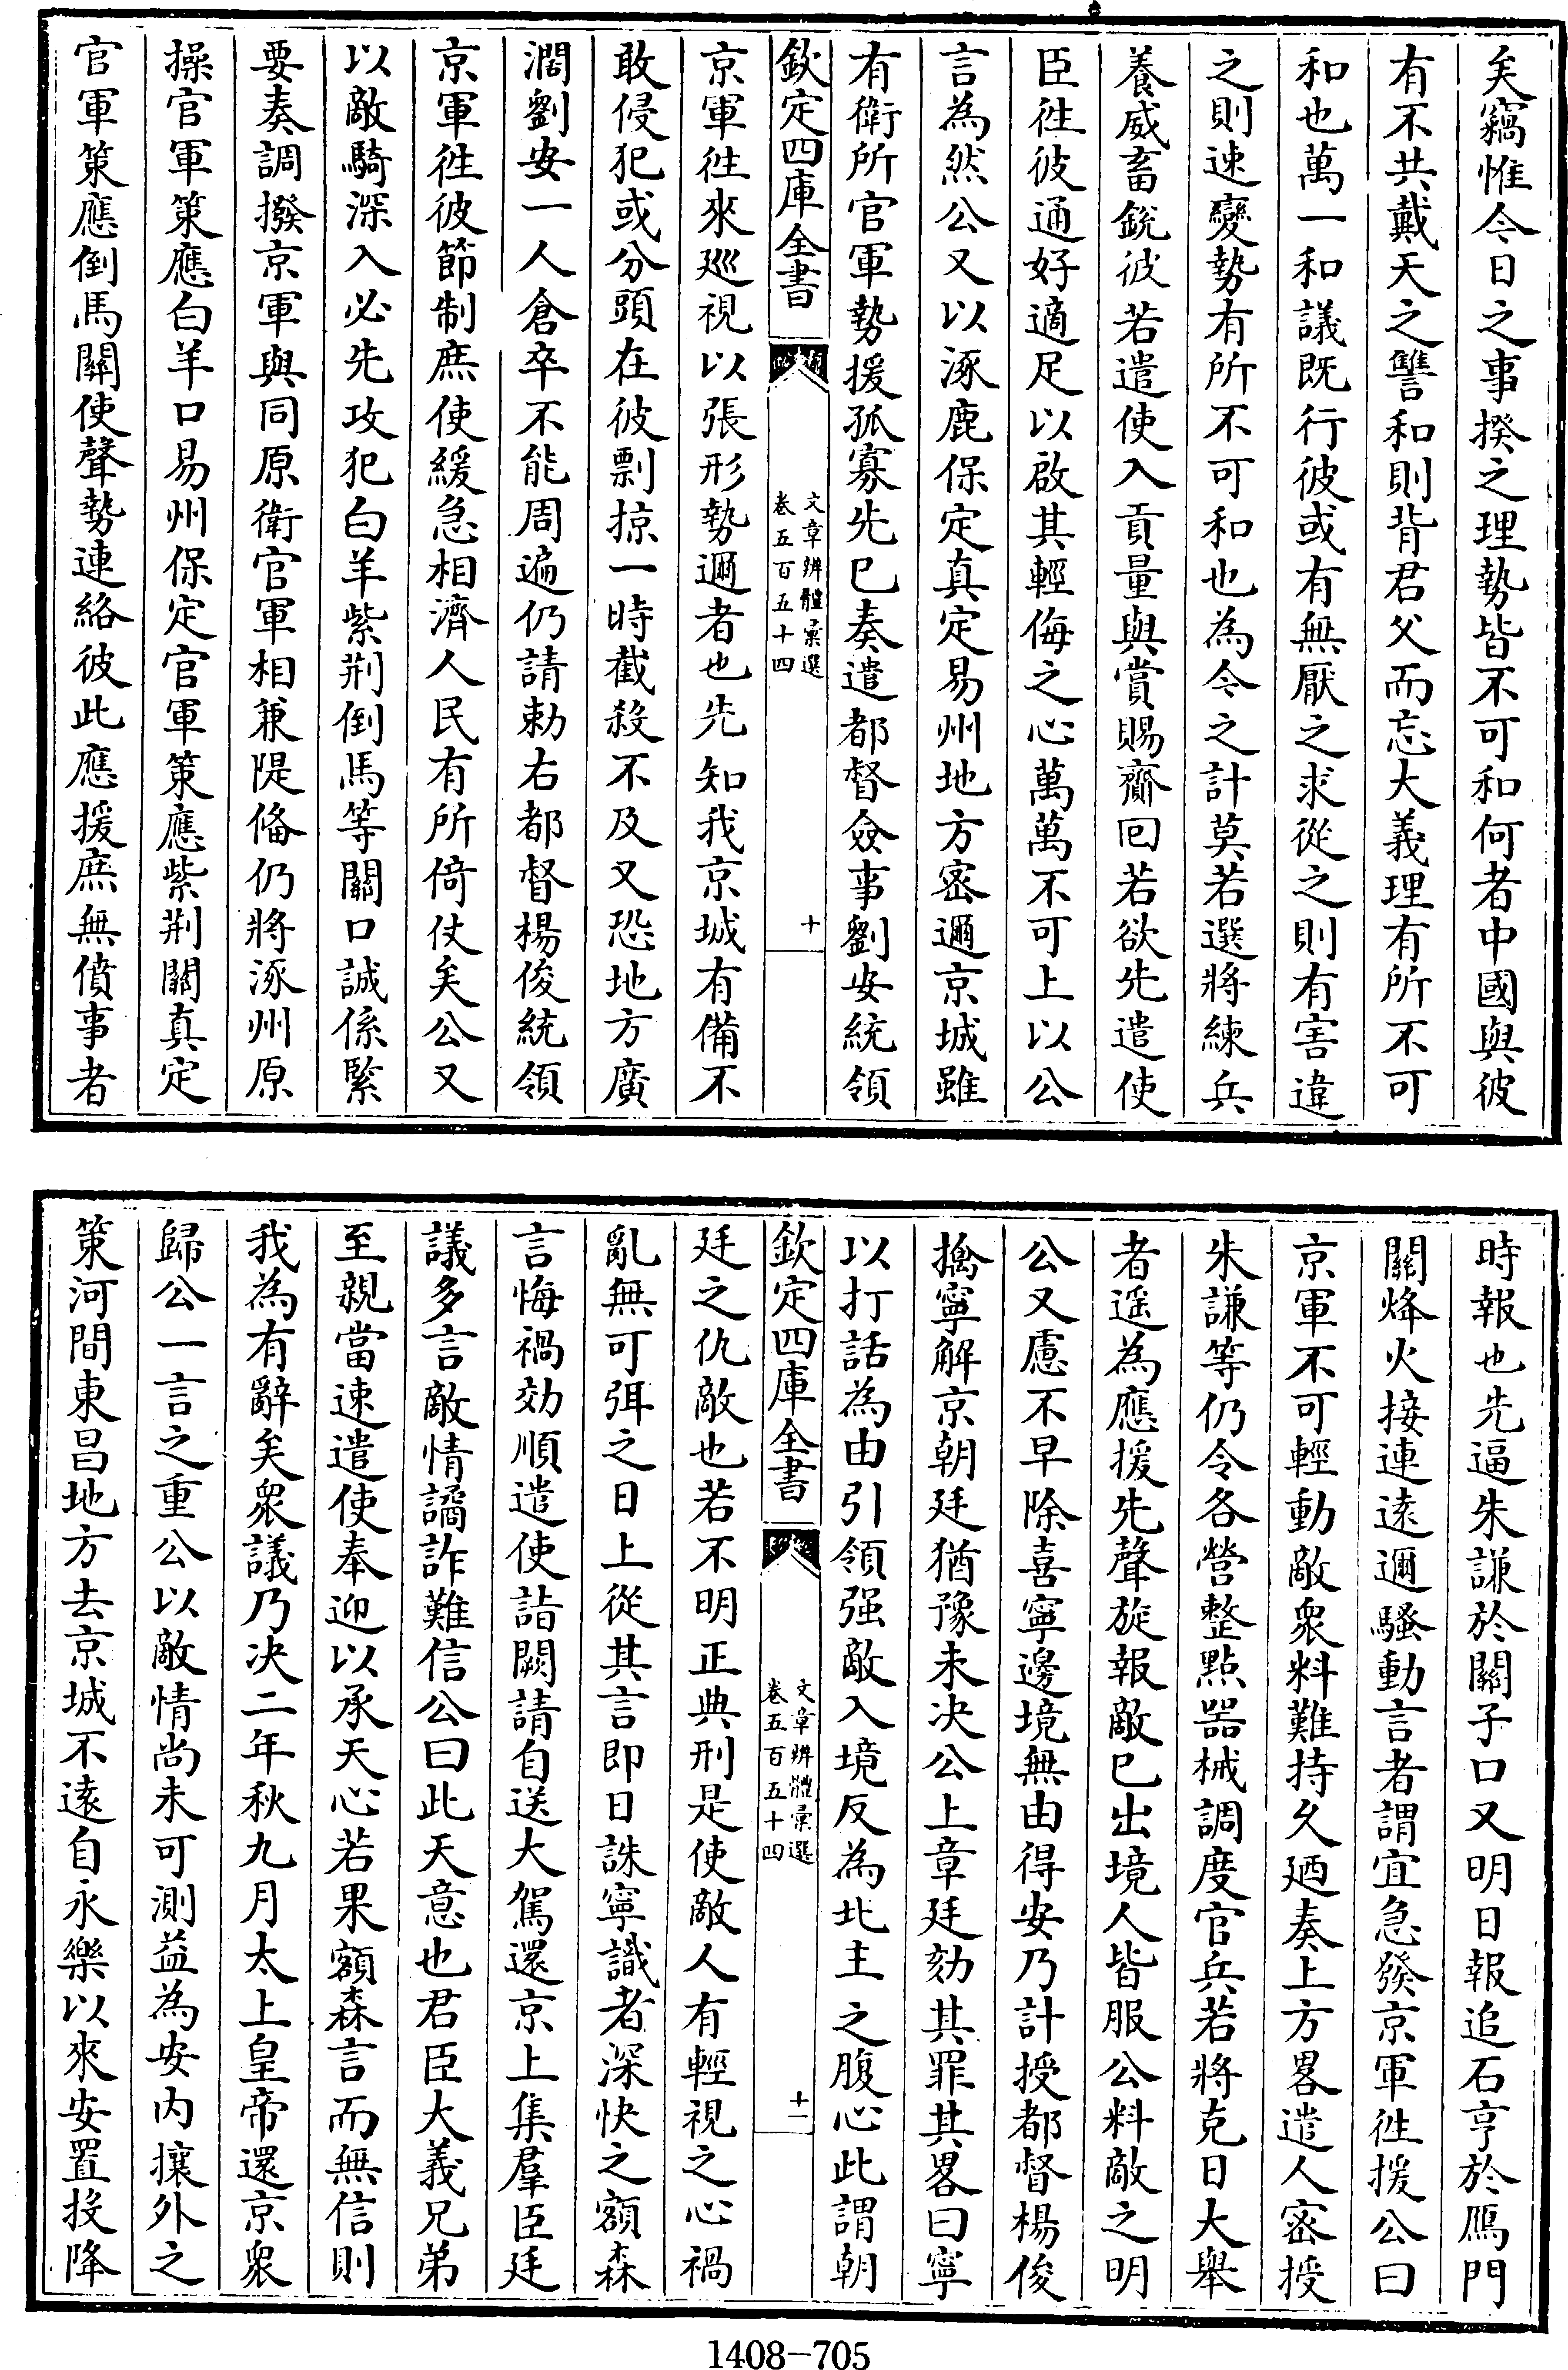 矣竊惟今日之事揆之理勢皆不可和何者中國與彼
有不共戴天之讐和則背君父而忘大義理有所不可
和也萬一和議既行彼或有無厭之求從之則有害違
之則速變勢有所不可和也為今之計莫若選將練兵
養威畜銳彼若遣使入貢量與賞賜齎囘若欲先遣使
臣徃彼通好適足以啟其輕侮之心萬萬不可上以公
言為然公又以涿鹿保定真定易州地方密邇京城雖
有衛所官軍勢援孤寡先已奏遣都督僉事劉安統領
欽定四庫全書
文章辨體彙選
卷五百五十四
十
京軍徃來廵視以張形勢邇者也先知我京城有備不
敢侵犯或分頭在彼剽掠一時截殺不及又恐地方廣
濶劉安一人倉卒不能周遍仍請勅右都督楊俊統領
京軍徃彼節制庶使緩急相濟人民有所倚仗矣公又
以敵騎深入必先攻犯白羊紫荆倒馬等關口誠係緊
要奏調撥京軍與同原衛官軍相兼隄偹仍將涿州原
操官軍策應白羊口易州保定官軍策應紫荆關真定
官軍策應倒馬關使聲勢連絡彼此應援庶無僨事者
時報也先逼朱謙於關子口又明日報追石亨於鴈門
關烽火接連遠邇騷動言者謂宜急發京軍徃援公曰
京軍不可輕動敵衆料難持久廼奏上方畧遣人密授
朱謙等仍令各營整點器械調度官兵若將克日大舉
者遥為應援先聲旋報敵已出境人皆服公料敵之明
公又慮不早除喜寧邊境無由得安乃計授都督楊俊
擒寧解京朝廷猶豫未决公上章廷劾其罪其畧曰寧
以打話為由引領强敵入境反為北主之腹心此謂朝
欽定四庫全書
文章辨體彙選
卷五百五十四
十一
廷之仇敵也若不明正典刑是使敵人有輕視之心禍
亂無可弭之日上從其言即日誅寧識者深快之額森
言悔禍効順遣使詣闕請自送大駕還京上集羣臣廷
議多言敵情譎詐難信公曰此天意也君臣大義兄弟
至親當速遣使奉迎以承天心若果額森言而無信則
我為有辭矣衆議乃决二年秋九月太上皇帝還京衆
歸公一言之重公以敵情尚未可測益為安内攘外之
策河間東昌地方去京城不遠自永樂以來安置投降
1408-705